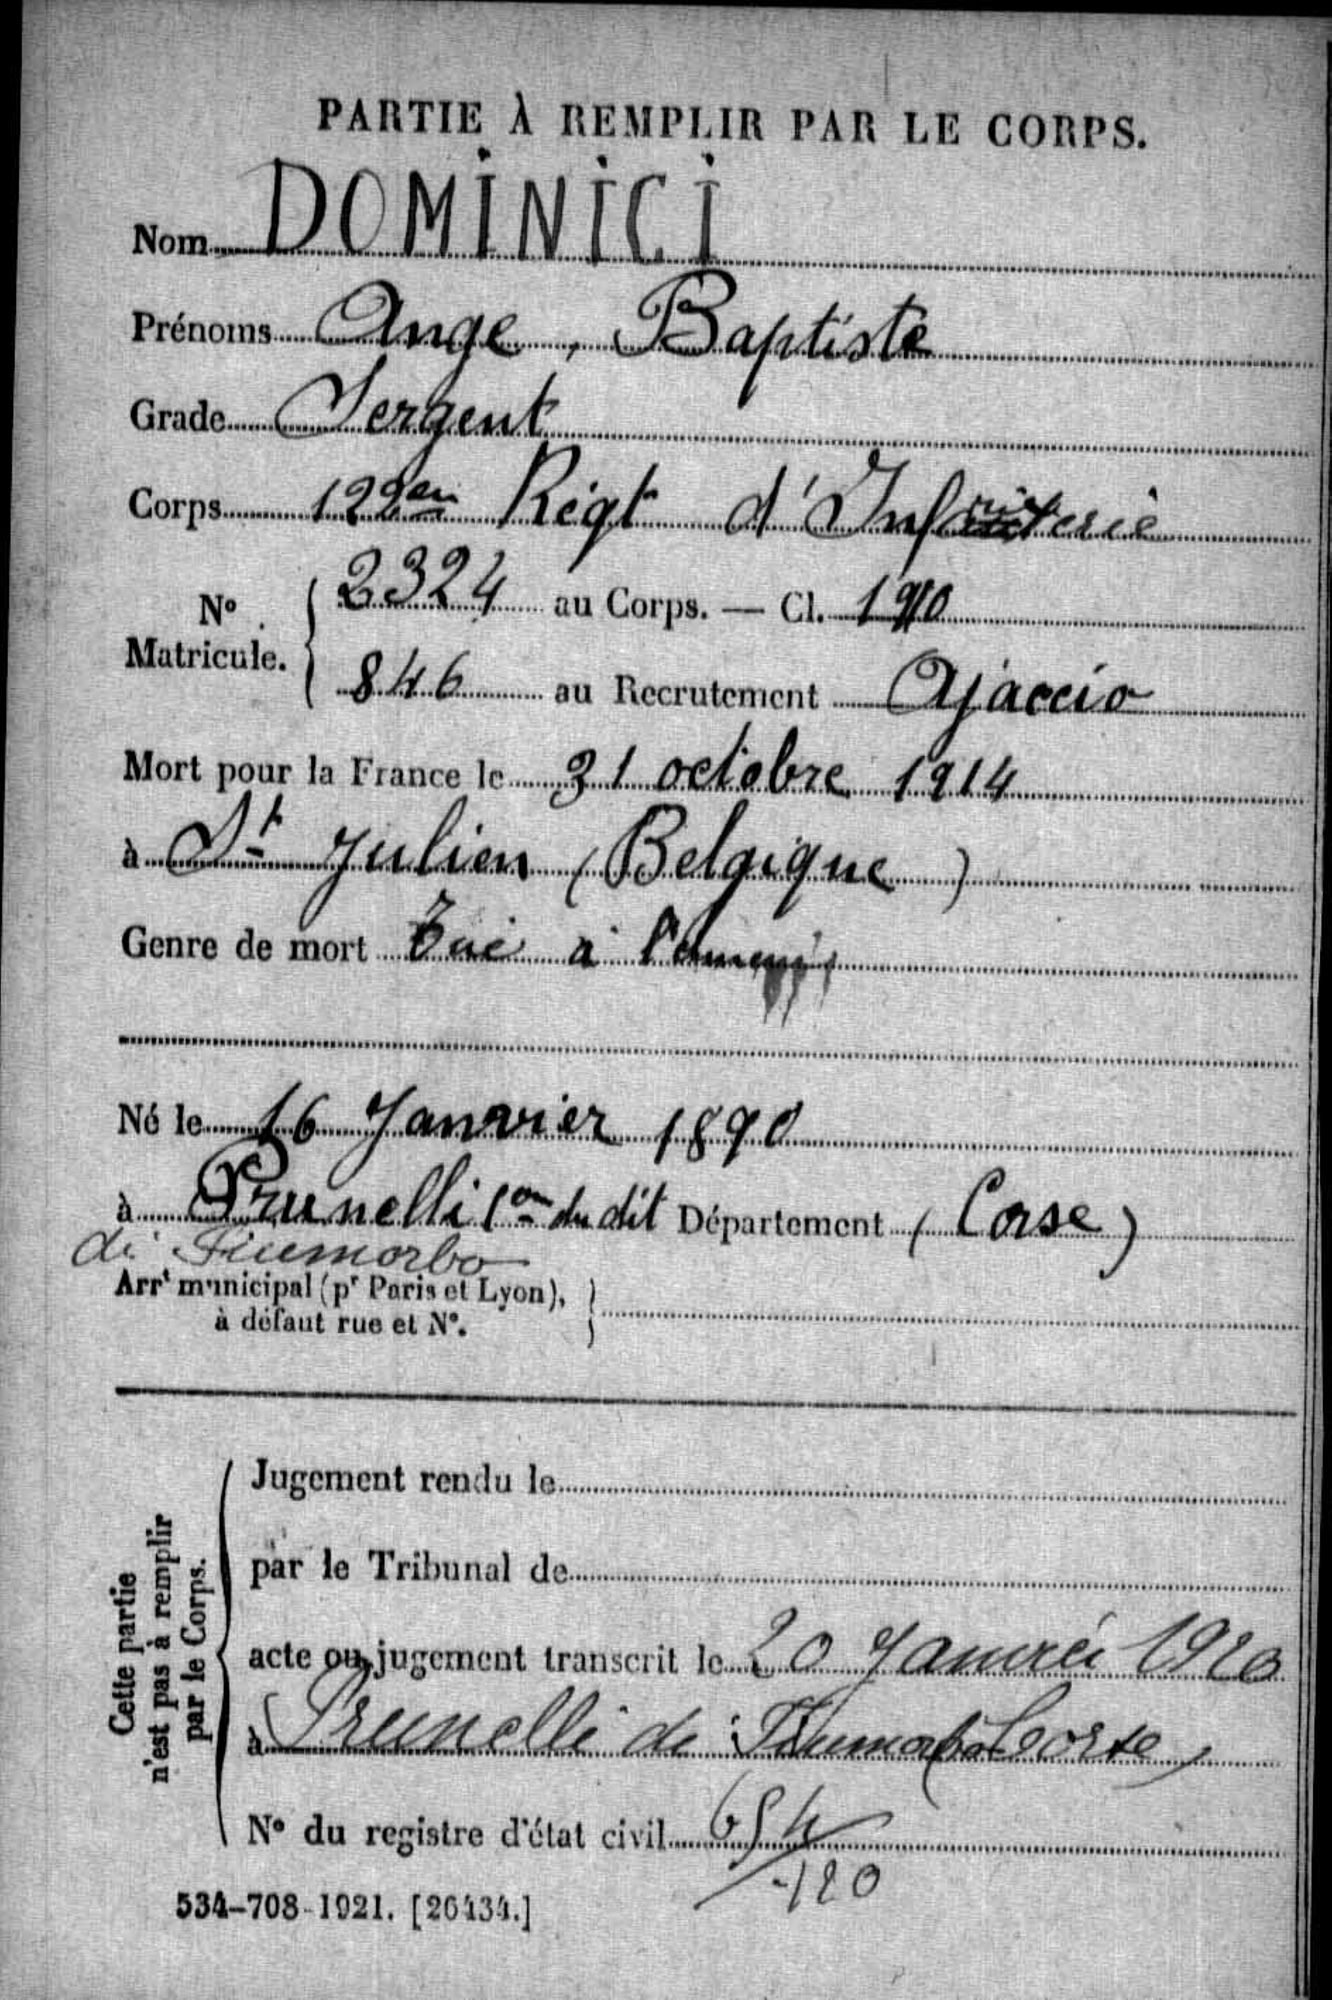 PARTIE À REMPLIR PAR LE CORPS.
Nom DOMINICI
Prénoms Ange, Baptiste
Grade Sergent
Corps 122em Régt d'Infanterie
N° Matricule. 2324 au Corps. — Cl. 1910
846 au Recrutement Ajaccio
Mort pour la France le 31 octobre 1914
à St Julien (Belgique)
Genre de mort Tué à l'ennemi
Né le 16 Janvier 1890
à Prunelli Con du dit Département (Corse)
di Fiumorbo
Arrt municipal (pr Paris et Lyon),
à défaut rue et N°.
Cette partie
n'est pas à remplir
par le Corps.
Jugement rendu le
par le Tribunal de
acte ou jugement transcrit le 20 Janvier 1920
à Prunelli di Fiumorbo Corse
N° du registre d'état civil 654/120
534-708-1921. [26434.]